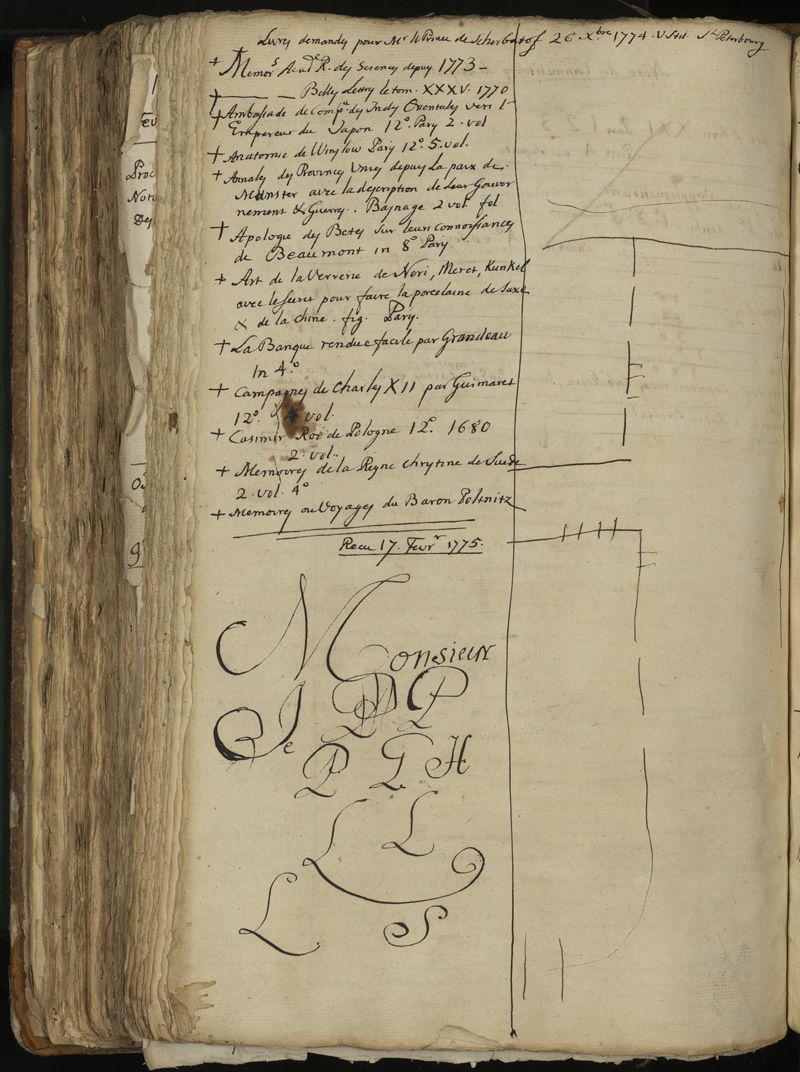 Livres demandes pour Mr le Prince de Scherbatof 26 Xbre 1774. V Stil. St Peterbourg
+ Memors Acad R. des Sciences depuy 1773 –
+ —— — Belles Lettres le tom. XXXV. 1770
+ Ambassade de Compe des Indes Orientales vers l'
Empereur du Japon 12o Pary 2. vol
+ Anatomie de Winslow Pary 12o. 5. vol.
+ Annales des Provinces Unies depuy la paix de
Munster avec la description de leur Gouver
nement & Guerres. Basnage 2 vol fol
+ Apologie des Betes sur leurs connoissances
de Beaumont in 8o Pary
+ Art de la Verrerie de Neri, Meret, Kunkel
avec le secret pour faire la porcelaine de Saxe
& de la Chine. fig. Pary.
+ La Banque rendue facile par Grandeau
in 4o
+ Campagnes de Charles XII par Guimaret
12o. 4 vol.
+ Casimir Roi de Pologne 12o. 1680
2. vol.
+ Memoires de la Reyne Chrytine de Suede
2. vol. 4o
+ Memoires ou Voyages du Baron Polnitz
Recu 17. Fevr 1775.
Monsieur
Je P P
P G H
L L
L S